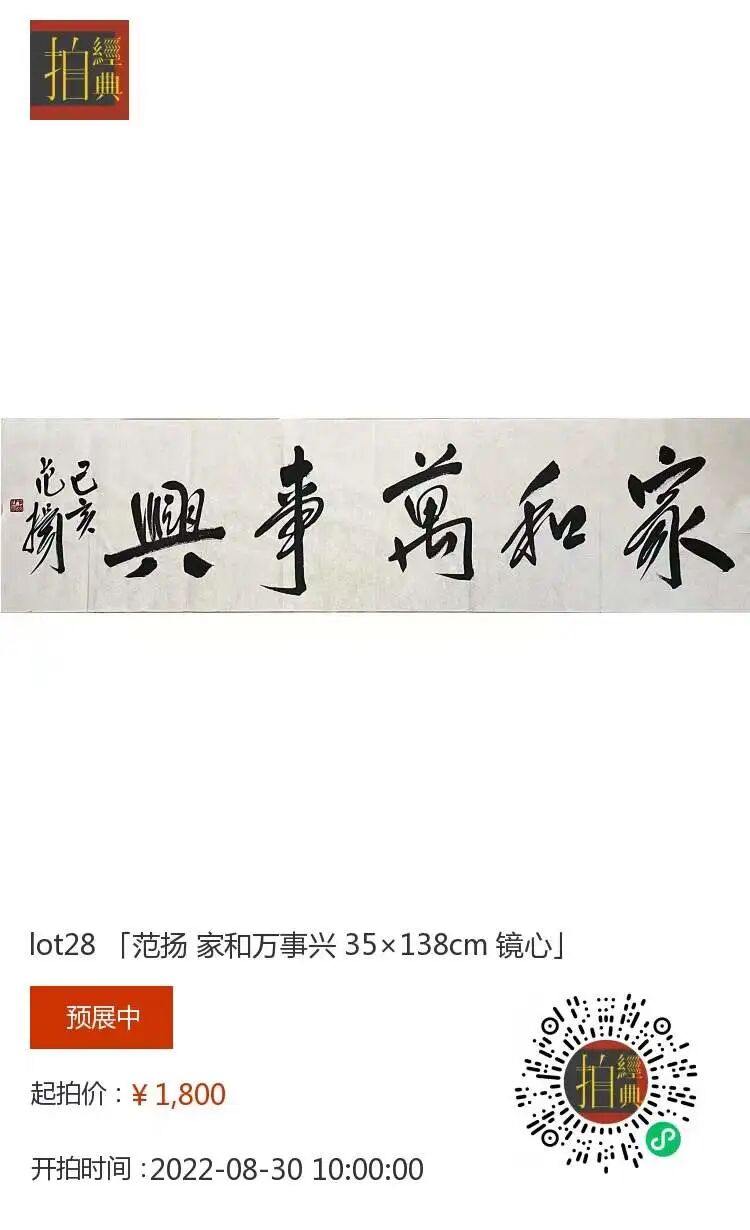 拍經典
家和萬事興
己亥
范揚
lot28 「范扬 家和万事兴 35×138cm 镜心」
预展中
起拍价：¥ 1,800
开拍时间：2022-08-30 10:00:00
拍經典